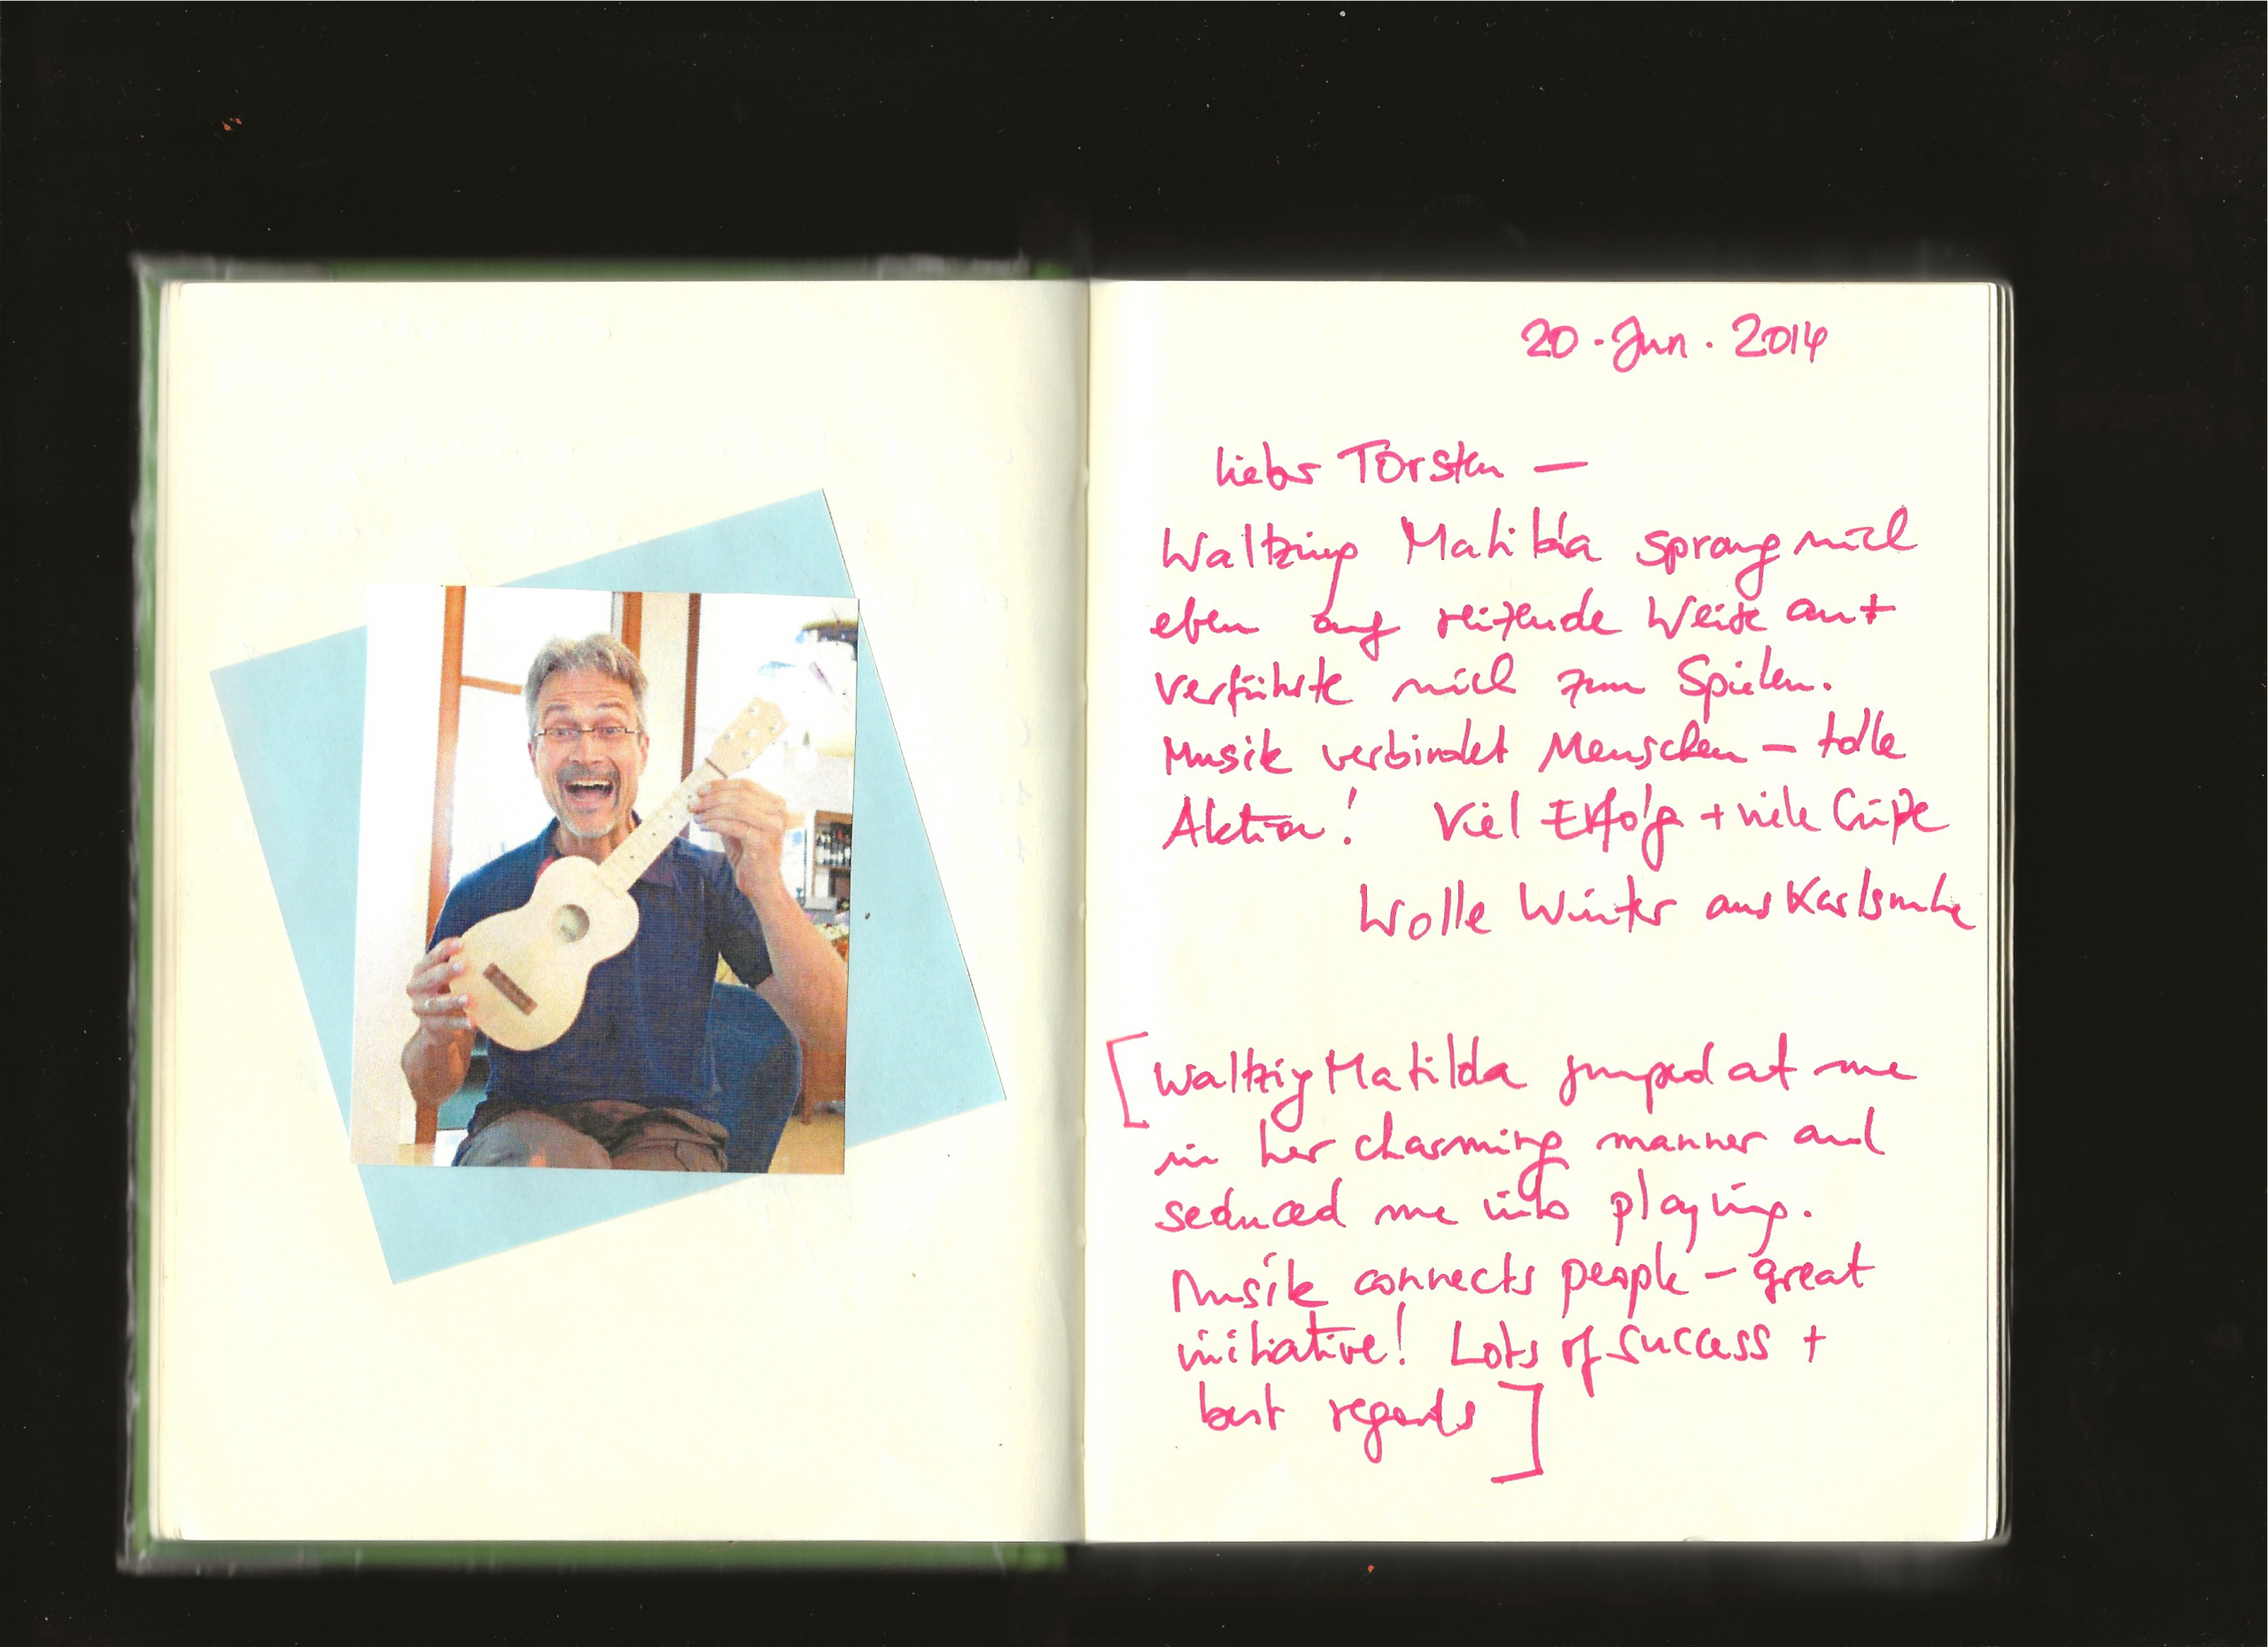 20. Jun. 2014
lieber Torsten —
Waltzing Matilda sprang mich
eben auf reizende Weise an +
verführte mich zum Spielen.
Musik verbindet Menschen — tolle
Aktion! Viel Erfolg + viele Grüße
Wolle Winter aus Karlsruhe
[Waltzig Matilda jumped at me
in her charming manner and
seduced me into playing.
Musik connects people — great
initiative! Lots of success +
best regards]